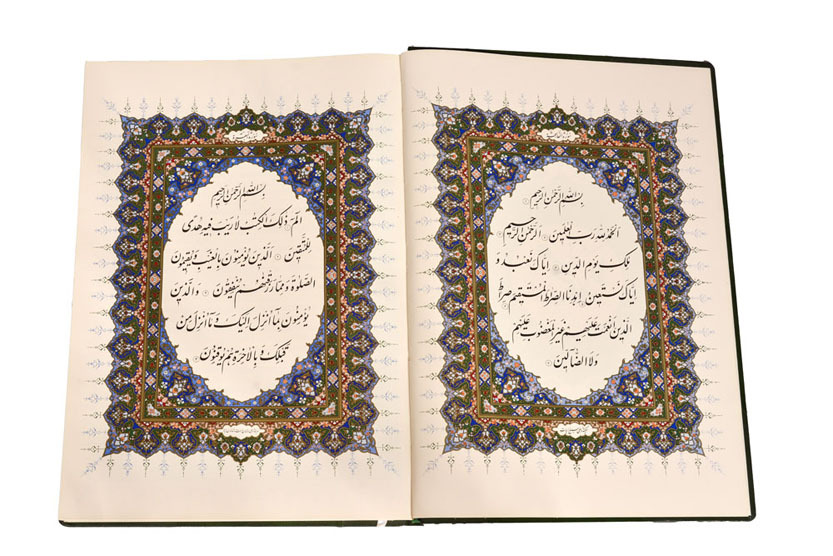 بسم الله الرحمن الرحیم
الحمد لله رب العلمین الرحمن الرحیم
ملک یوم الدین ایاک نعبد و
ایاک نستعین اهدنا الصراط المستقیم صراط
الذین انعمت علیهم غیر المغضوب علیهم
ولا الضالین
بسم الله الرحمن الرحیم
الم ذلک الکتب لا ریب فیه هدی
للمتقین الذین یؤمنون بالغیب و یقیمون
الصلوة و مما رزقنهم ینفقون والذین
یؤمنون بما أنزل إلیک و ما أنزل من
قبلک و بالآخرة هم یوقنون